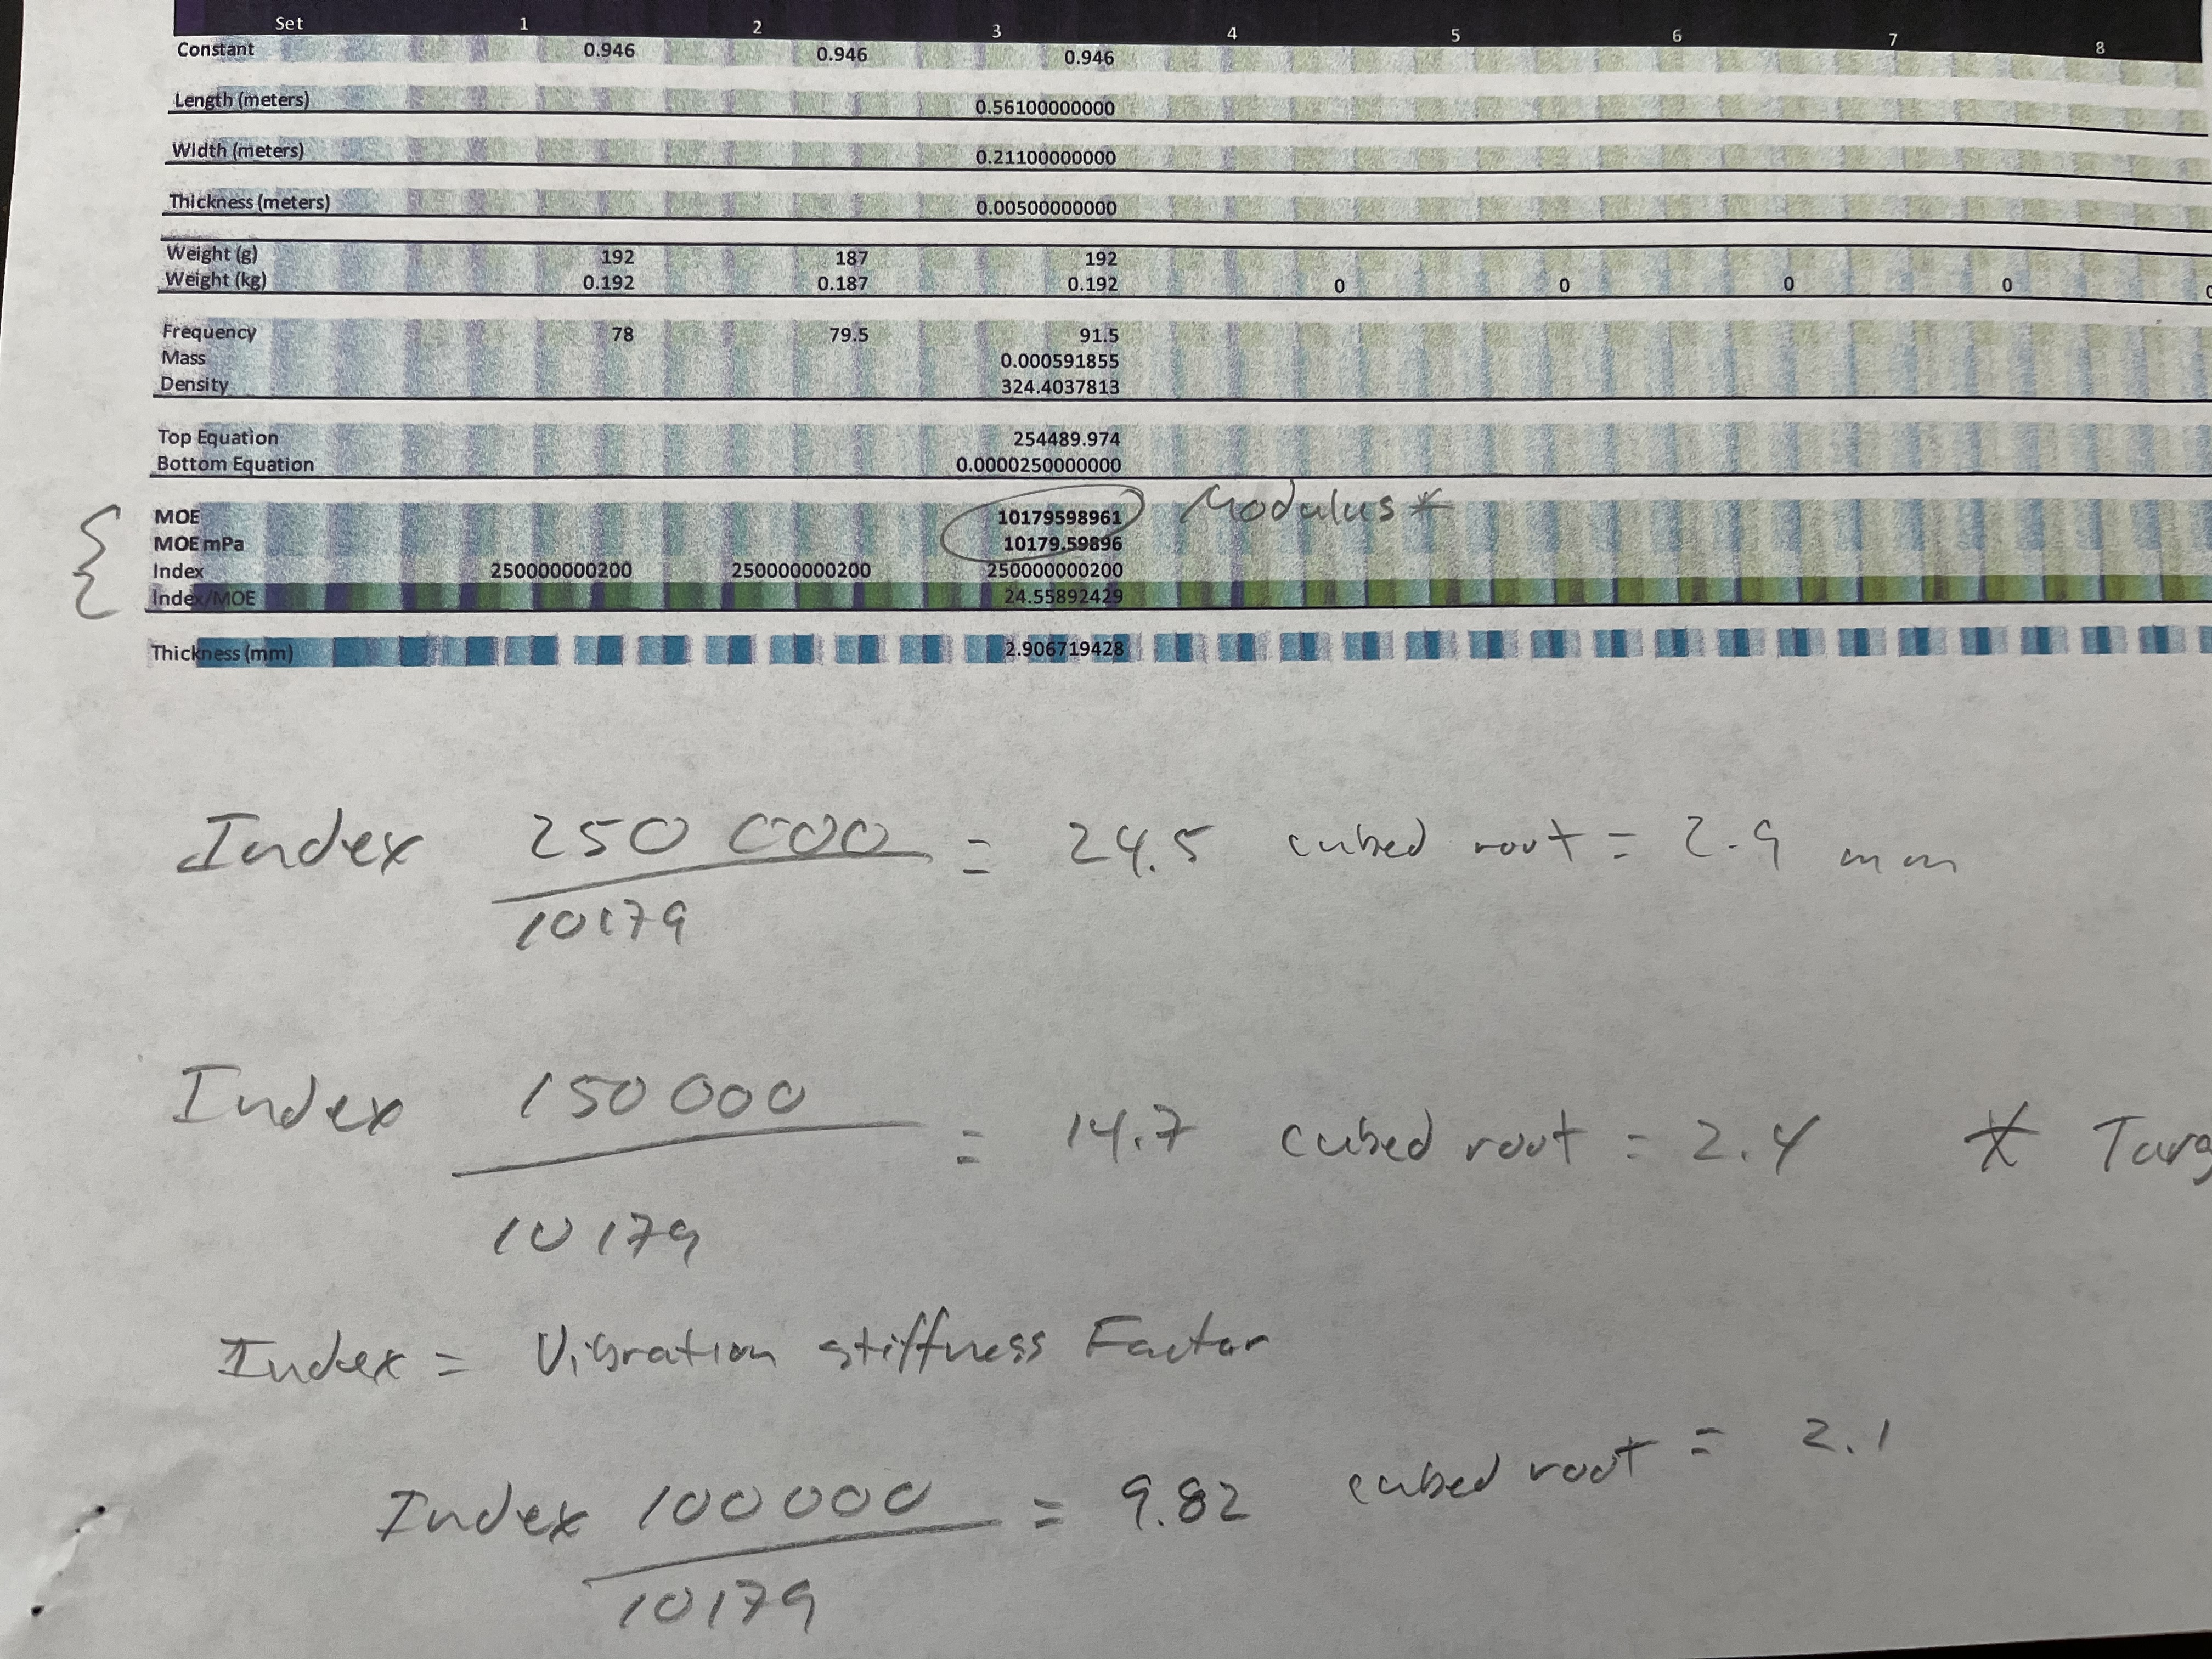 Set 1 2 3 4 5 6 7 8
Constant 0.946 0.946 0.946
Length (meters) 0.56100000000
Width (meters) 0.21100000000
Thickness (meters) 0.00500000000
Weight (g) 192 187 192
Weight (kg) 0.192 0.187 0.192 0 0 0 0
Frequency 78 79.5 91.5
Mass 0.000591855
Density 324.4037813
Top Equation 254489.974
Bottom Equation 0.0000250000000
MOE 10179598961 Modulus *
MOE mPa 10179.59896
Index 250000000200 250000000200 250000000200
Index/MOE 24.55892429
Thickness (mm) 2.906719428
Index 250 000 = 24.5 cubed root = 2.9 mm
10179
Index 150 000 = 14.7 cubed root = 2.4 * Targ
10179
Index = Vibration stiffness Factor
Index 100 000 = 9.82 cubed root = 2.1
10179